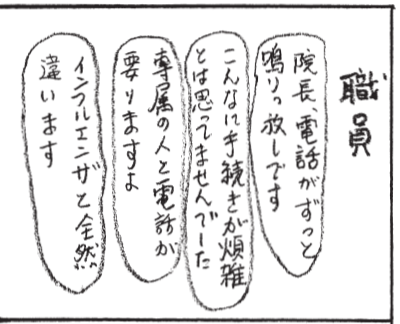 職員
院長、電話がずっと
鳴りっ放しです
こんなに手続きが煩雑
とは思ってませんでした
専属の人と電話が
要りますよ
インフルエンザと全然
違います